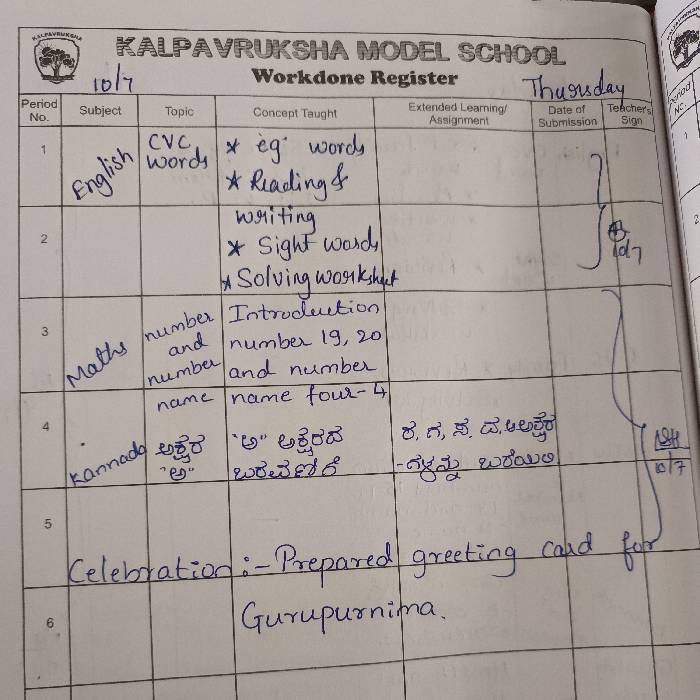 KALPAVRUKSHA
KALPAVRUKSHA MODEL SCHOOL
Workdone Register
10/7 Thursday
Period No. Subject Topic Concept Taught Extended Learning/ Assignment Date of Submission Teacher's Sign
1 English CVC words * eg' words
* Reading &
2 writing
* Sight words
* Solving worksheet
10/7
3 Maths number and number name Introduction
number 19, 20
and number
name four-4
4 Kannada ಅಕ್ಷರ "ಅ" "ಅ" ಅಕ್ಷರದ
ಬರವಣಿಗೆ
ಬರೆಯಿರಿ
10/7
5
Celebration :- Prepared greeting card for
6 Gurupurnima.